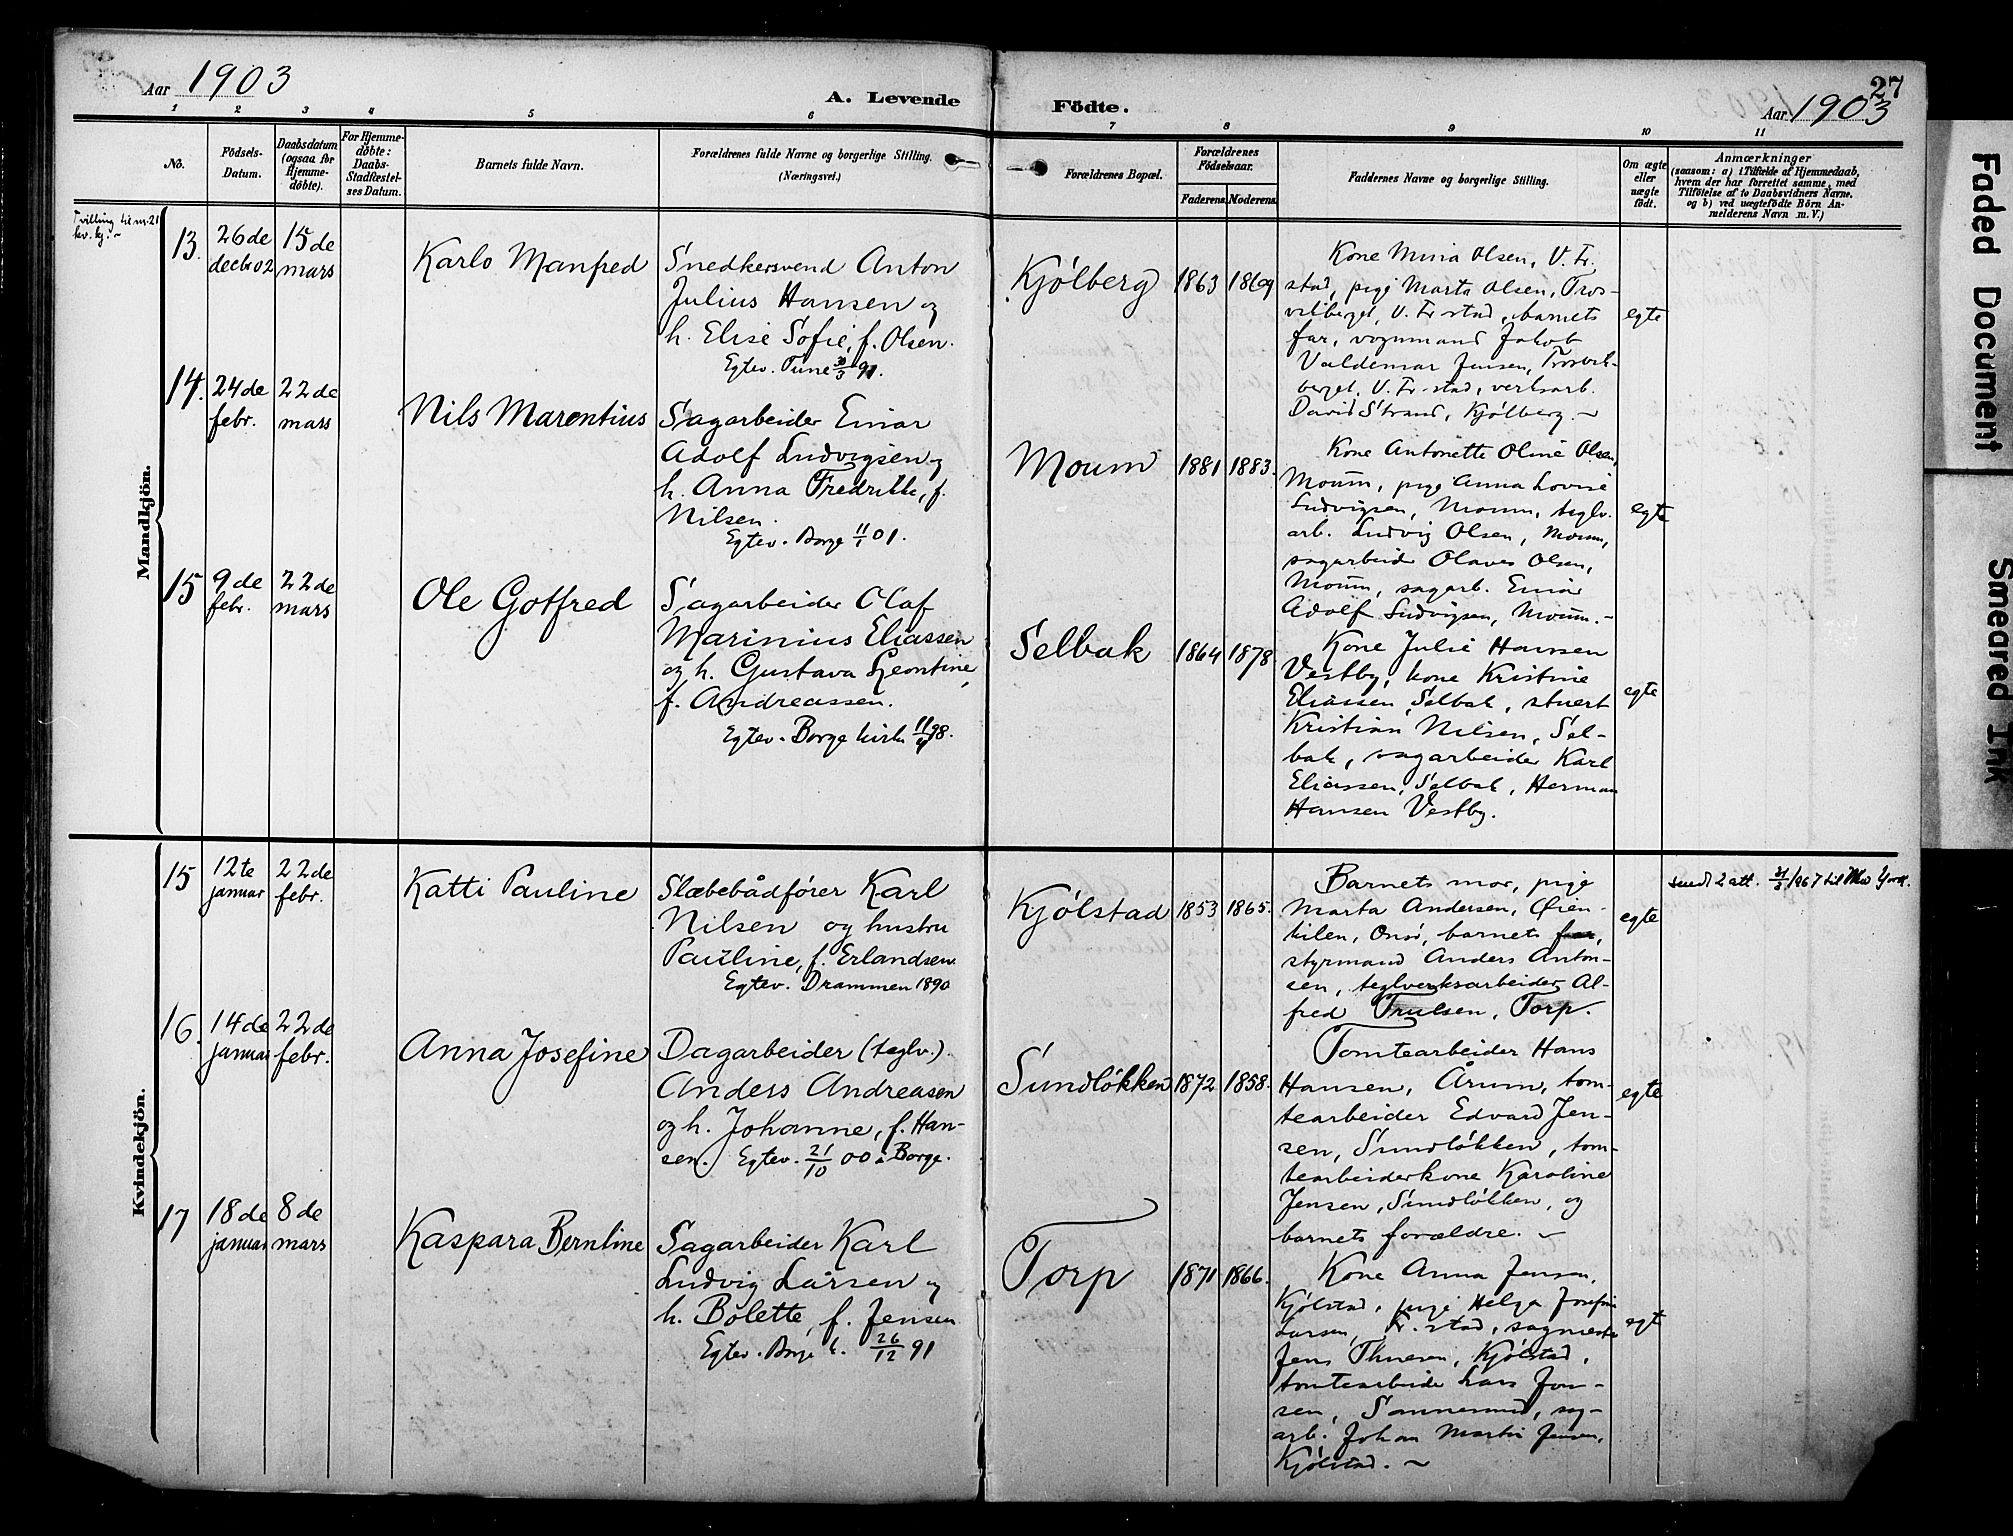 Aar 1903
A. Levende
Födte.
27
Aar 1903
1 2 3 4 5 6 7 8 9 10 11
No.
Födsels-
Datum.
Daabsdatum
(ogsaa for
Hjemme-
döbte).
For Hjemme-
döbte:
Daabs-
Stadfæstel-
ses Datum.
Barnets fulde Navn.
Forældrenes fulde Navne og borgerlige Stilling.
(Næringsvei.)
Forældrenes Bopæl.
Forældrenes
Födselsaar.
Faderens. Moderens.
Faddernes Navne og borgerlige Stilling.
Om ægte
eller
uægte
födt.
Anmærkninger
(saasom: a) i Tilfælde af Hjemmedaab,
hvem der har forrettet samme, med
Tilföielse af to Daabsvidners Navne,
og b) ved uægtefödte Börn An-
melderens Navn m. V.)
Mandkjön.
Tvilling til nr. 21
kv. kj. -
13.
26de
decbr 02
15de
mars
Karlo Manfred
Snedkersvend Anton
Julius Hansen og
h. Elise Sofie, f. Olsen.
Egtev. Tune 30/3 91.
Kjölberg
1863
1869
Kone Mina Olsen, V. Fr.
stad, pige Marta Olsen, Tros-
vikberget, V. Fr stad, barnets
far, vognmand Jakob
Valdemar Jensen, Trosvik-
berget, V. Fr-stad, verksarb.
David Strand, Kjölberg. -
egte
14.
24de
febr.
22de
mars
Nils Marentius
Sagarbeider Einar
Adolf Ludvigsen og
h. Anna Fredrikke, f.
Nilsen.
Egtev. Borge 11/1 01.
Moum
1881
1883.
Kone Antonette Oline Olsen,
Moum, pige Anna Lovise
Ludvigsen, Moum, teglv.
arb. Ludvig Olsen, Moum,
sagarbeider Olaves Olsen,
Moum, sagarb. Einar
Adolf Ludvigsen, Moum. -
egte
15
9de
febr.
22de
mars
Ole Gotfred
Sagarbeider Olaf
Marinius Eliassen
og h. Gustava Leontine,
f. Andreassen.
Egtev. Borge kirke 98.
Selbak
1864
1878
Kone Julie Hansen
Vestby, kone Kristine
Eliassen, Selbak, stuert
Kristian Nilsen, Sel-
bak, sagarbeider Karl
Eliassen, Selbak, Herman
Hansen Vestby.
egte
Kvindekjön.
15
12te
januar
22de
febr.
Katti Pauline
Slæbebådfører Karl
Nilsen og hustru
Pauline, f. Erlandsen.
Egtev. Drammen 1890
Kjölstad
1853
1865.
Barnets mor, pige
Marta Andersen, Øien-
kilen, Onsö, barnets far,
styrmand Anders Anton-
sen, teglverksarbeider Al-
fred Trulsen, Torp.
egte
sendt 2 att. til New York.
16.
14de
januar
22de
febr.
Anna Josefine
Dagarbeider (teglv.)
Anders Andreasen
og h. Johanne, f. Han-
sen. Egtev. 21/10 00 i Borge.
Sundlökken
1872
1858.
Tomtearbeider Hans
Hansen, Årum, tom-
tearbeider Edvard Jen-
sen, Sundlökken, tom-
tearbeiderkone Karoline
Jensen, Sundlökken, og
barnets forældre. -
egte
17
18de
januar
8de
mars
Kaspara Berntine
Sagarbeider Karl
Ludvig Larsen og
h. Bolette, f. Jensen
Egtev. Borge k. 26/12 91
Torp
1871
1866.
Kone Anna Jensen,
Kjölstad, pige Helga Josefine
Larsen, Fr. stad, sagmester
Jens Thuesen, Kjölstad,
tomtearbeider Lars Jon-
sen, Sannesund, sag-
arb. Johan Martin Jensen,
Kjölstad. -
egte
Faded Document
Smeared Ink